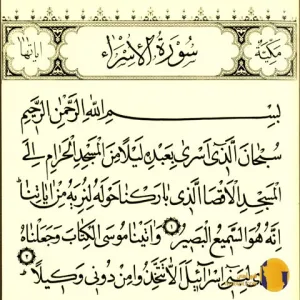 مكية سورة الإسراء آياتها
بسم الله الرحمن الرحيم
سبحان الذي أسرى بعبده ليلا من المسجد الحرام إلى
المسجد الأقصا الذي باركنا حوله لنريه من آياتنا
إنه هو السميع البصير وآتينا موسى الكتاب وجعلناه
إسرائيل ألا تتخذوا من دوني وكيلا